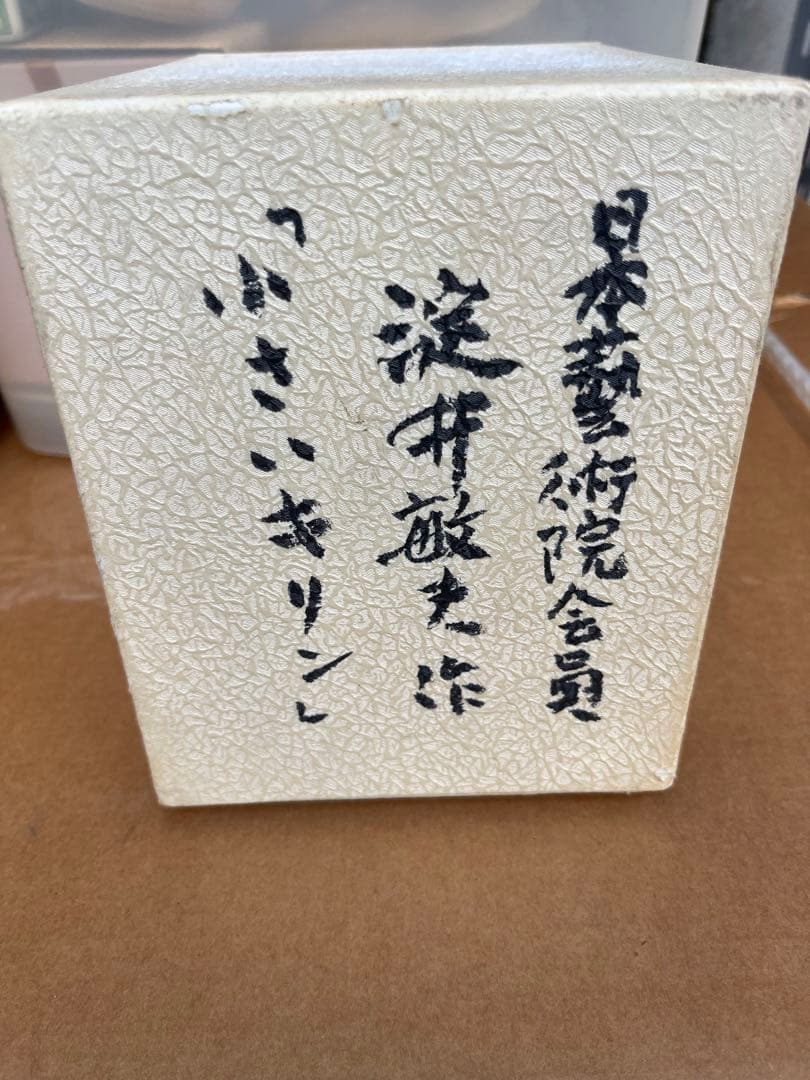 日本藝術院会員
淀井敏夫作
「小さいキリン」